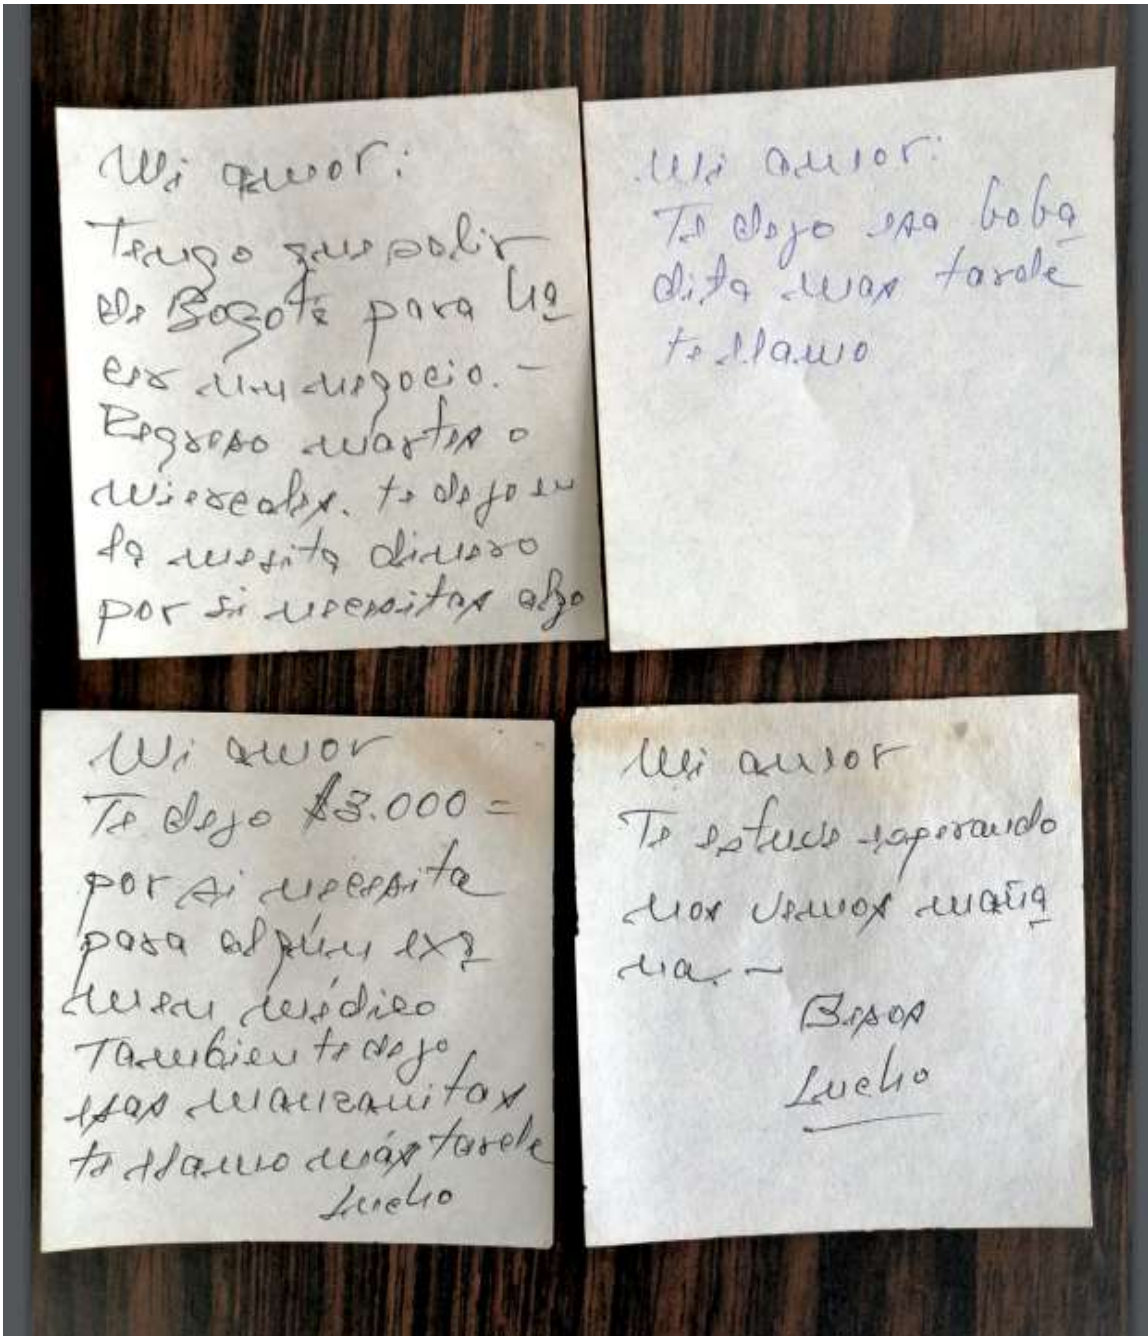 Mi amor:
Tengo que salir
de Bogotá para ha
cer un negocio. -
Regreso martes o
miercoles. te dejo en
la mesita dinero
por si necesitas algo
Mi amor:
Te dejo esa boba
dita mas tarde
te llamo
Mi amor
Te dejo $3.000=
por si necesita
para algún exa
men médico
Tambien te dejo
esas manzanitas
te llamo más tarde
Lucho
Mi amor
Te estuve esperando
nos vemos maña
na. -
Besos
Lucho